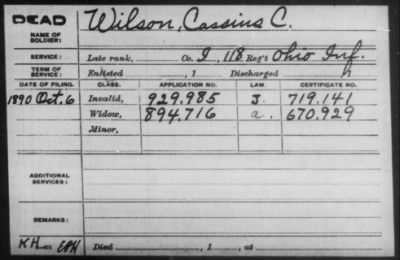 DEAD Wilson, Cassius C.
NAME OF SOLDIER:
SERVICE: Late rank, Co. I 118 Reg't Ohio Inf.
TERM OF SERVICE: Enlisted , 1 Discharged , 1
DATE OF FILING. CLASS. APPLICATION NO. LAW. CERTIFICATE NO.
1890 Oct. 6 Invalid, 929.985 J. 719.141
Widow, 894.716 a. 670.929
Minor,
ADDITIONAL SERVICES:
REMARKS:
Died , 1 , at